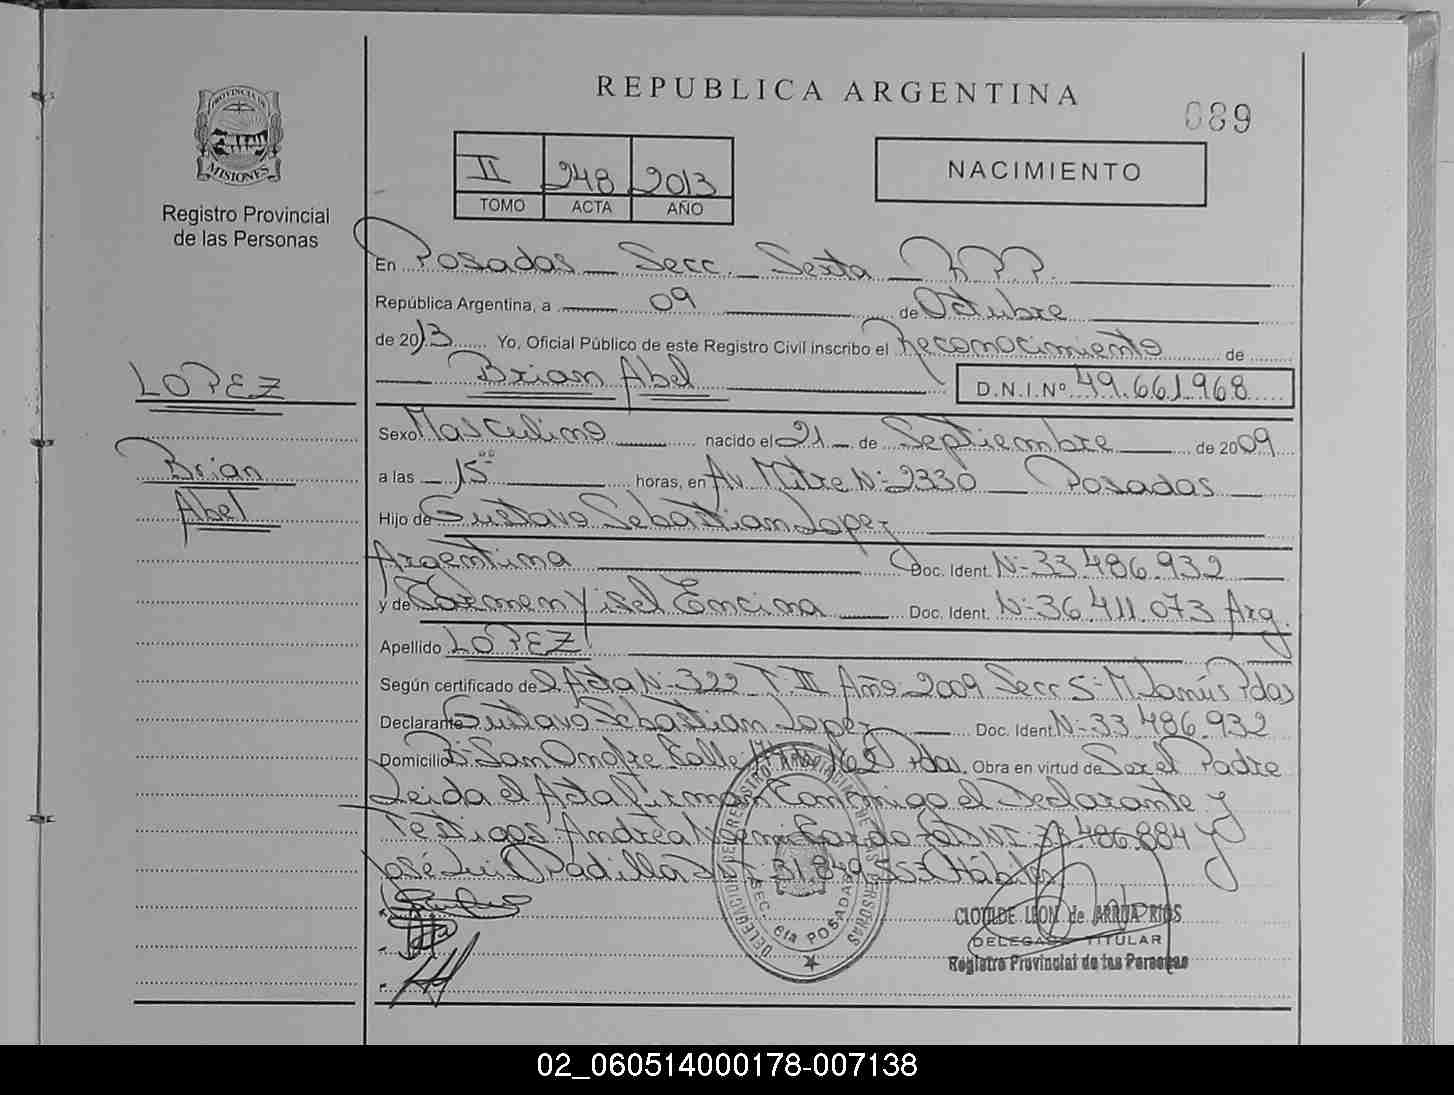 REPUBLICA ARGENTINA
089
PROVINCIA DE
MISIONES
Registro Provincial
de las Personas
II 248 2013
TOMO ACTA AÑO
NACIMIENTO
En Posadas Secc. Sexta R.P.P.
República Argentina, a 09 de Octubre
de 2013 Yo, Oficial Público de este Registro Civil inscribo el Reconocimiento de
Brian Abel D.N.I.Nº 49.661.968
LOPEZ
Brian
Abel
Sexo Masculino nacido el 21 de Septiembre de 2009
a las 15 00 horas, en Av. Mitre Nº 2330 Posadas
Hijo de Gustavo Sebastian Lopez
Argentina Doc. Ident. Nº 33.486.932
y de Carmen Yisel Encina Doc. Ident. Nº 36.411.073 Arg.
Apellido LOPEZ
Según certificado de Acta Nº 322 T III Año 2009 Secc 5º M. Lanús Pdas
Declarante Gustavo Sebastian Lopez Doc. Ident. Nº 33.486.932
Domicilio Bº San Onofre Calle Pdas. Obra en virtud de Ser el Padre
Leida el Acta Firman Conmigo el Declarante y
Testigos Andrea Noemi DNI 486.884 y
José Luis Padilla DNI 31.849. Hábiles
DELEGACION DEL REGISTRO PROVINCIAL DE LAS PERSONAS
SEC. 6ta POSADAS
CLOTILDE LEON de ARRUA RIOS
DELEGADO TITULAR
Registro Provincial de las Personas
02_060514000178-007138